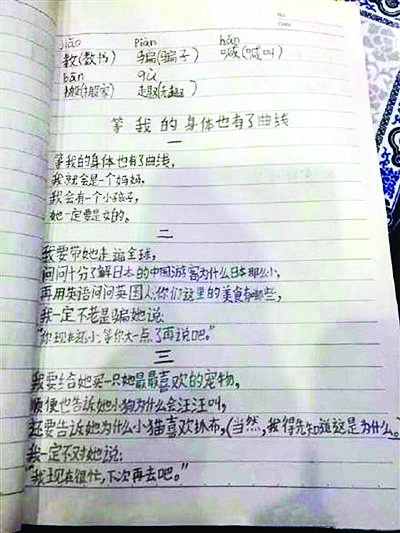 No
Date
jiāo piàn hǎn
教(教书) 骗(骗子) 喊(喊叫)
bān qù
搬(搬家) 趣(无趣)
等我的身体也有了曲线
一
等我的身体也有了曲线,
我就会是一个妈妈,
我会有一个小孩子,
她一定要是女的。
二
我要带她走遍全球,
问问十分了解日本的中国游客为什么日本那么小,
再用英语问问英国人:你们这里的美食有哪些,
我一定不老是骗她说:
“你现在还小,等你大一点了再说吧。”
三
我要给她买一只她最最喜欢的宠物,
顺便也告诉她小狗为什么会汪汪叫,
还要告诉她为什么小猫喜欢抓布,(当然,我得先知道这是为什么。)
我一定不对她说:
“我现在很忙,下次再去吧。”